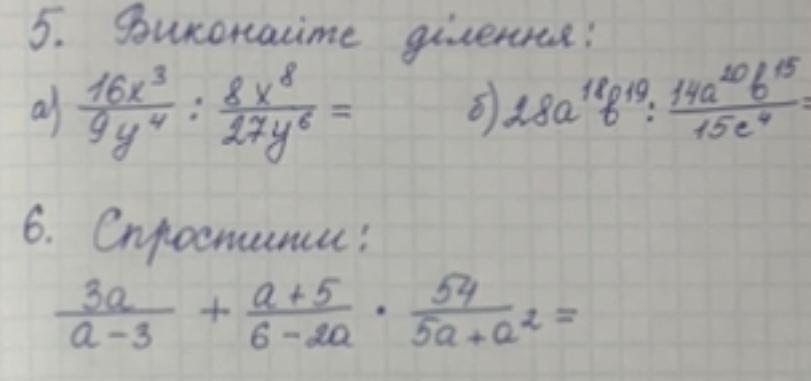 5. Виконайте ділення:
а) 16x³/9y⁴ : 8x⁸/27y⁶ = б) 28a¹⁸b¹⁹ : 14a²⁰b¹⁵/15c⁴ =
6. Спростити:
3a/a-3 + a+5/6-2a · 54/5a+a² =